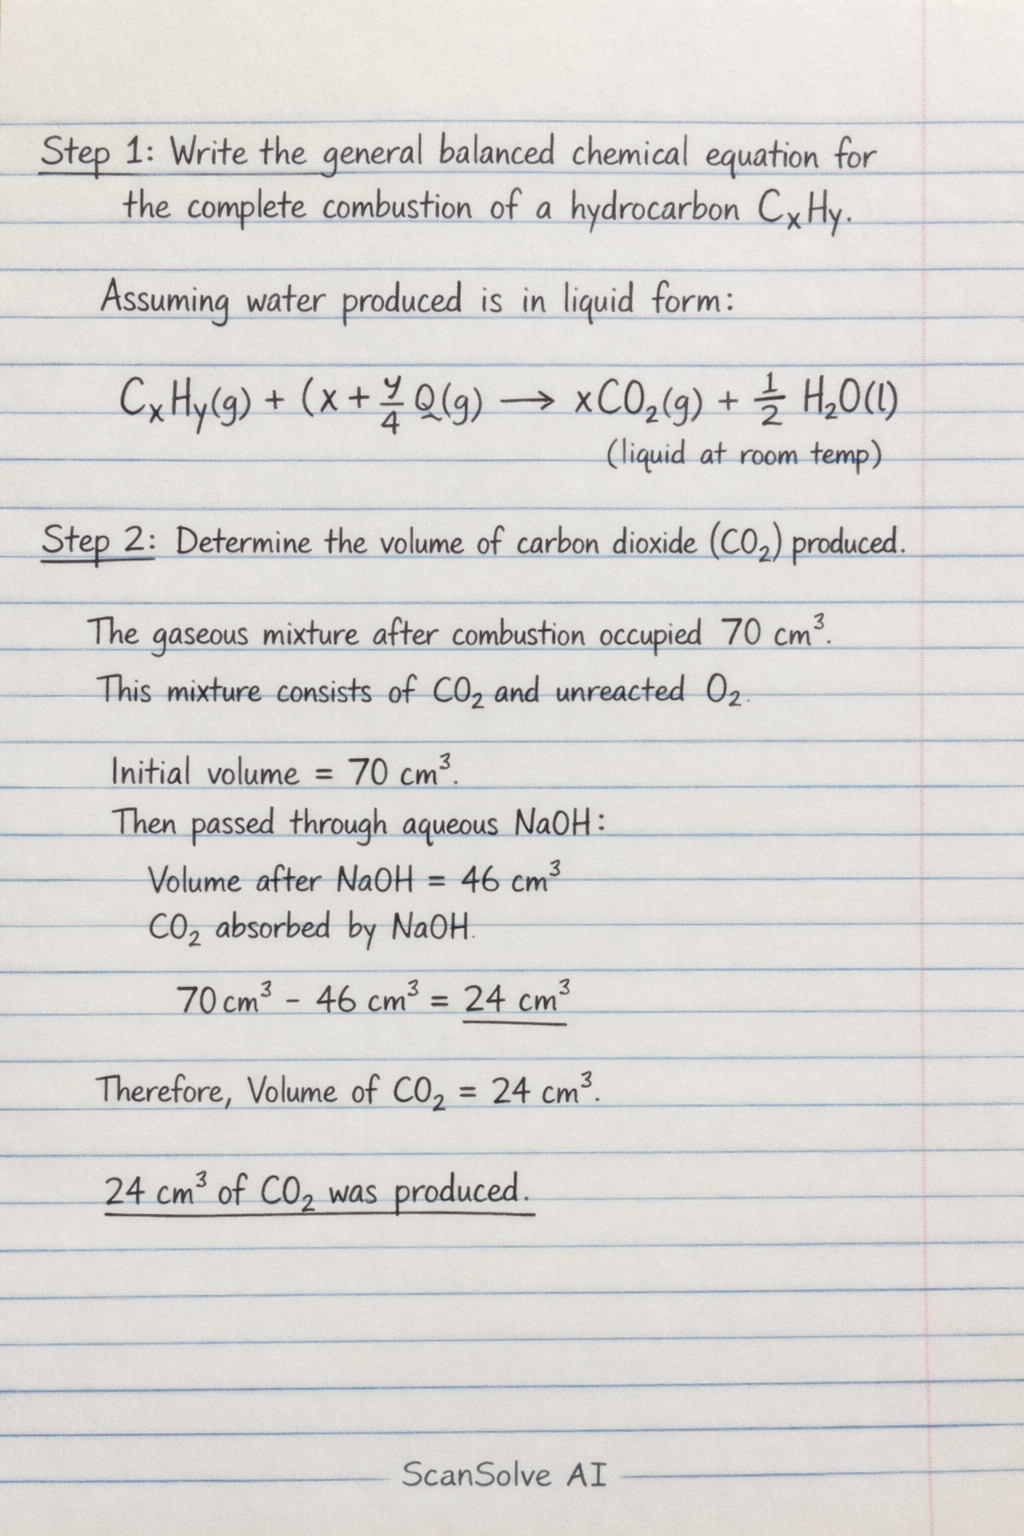 Step 1: Write the general balanced chemical equation for
the complete combustion of a hydrocarbon CₓHy.
Assuming water produced is in liquid form:
CₓHy(g) + (x + y/4 Q(g) → xCO₂(g) + 1/2 H₂O(l)
(liquid at room temp)
Step 2: Determine the volume of carbon dioxide (CO₂) produced.
The gaseous mixture after combustion occupied 70 cm³.
This mixture consists of CO₂ and unreacted O₂.
Initial volume = 70 cm³.
Then passed through aqueous NaOH:
Volume after NaOH = 46 cm³
CO₂ absorbed by NaOH.
70 cm³ - 46 cm³ = 24 cm³
Therefore, Volume of CO₂ = 24 cm³.
24 cm³ of CO₂ was produced.
ScanSolve AI